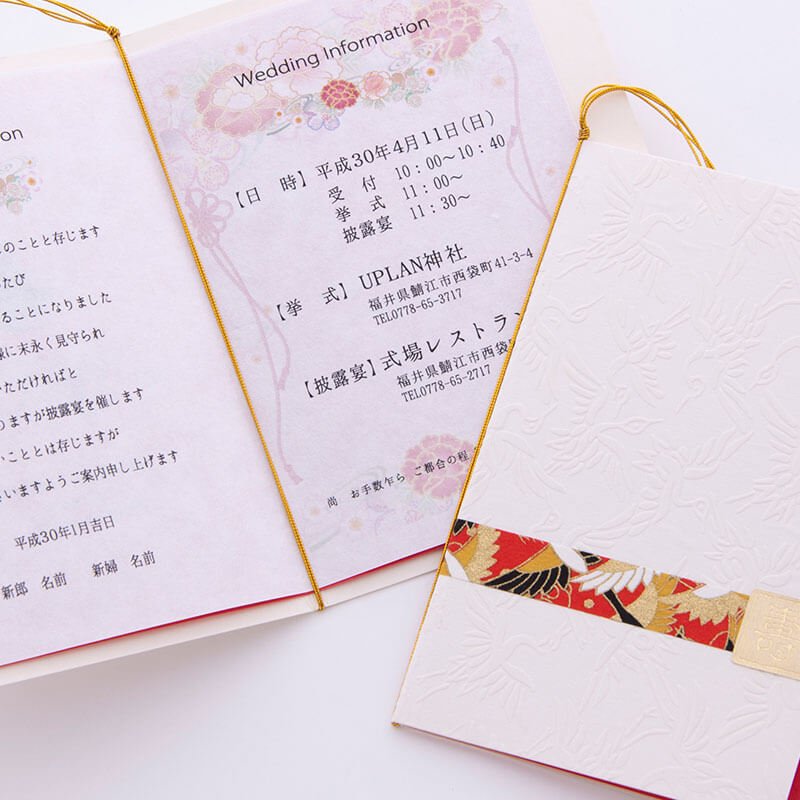 on
のことと存じます
たび
ることになりました
様に末永く見守られ
いただければと
りますが披露宴を催します
いこととは存じますが
いますようご案内申し上げます
平成30年1月吉日
新郎 名前 新婦 名前
Wedding Information
【日 時】平成30年4月11日(日)
受 付 10:00〜10:40
挙 式 11:00〜
披露宴 11:30〜
【挙 式】UPLAN神社
福井県鯖江市西袋町41-3-4
TEL0778-65-3717
【披露宴】式場レストラン
福井県鯖江市西袋町
TEL0778-65-2717
尚 お手数乍ら ご都合の程